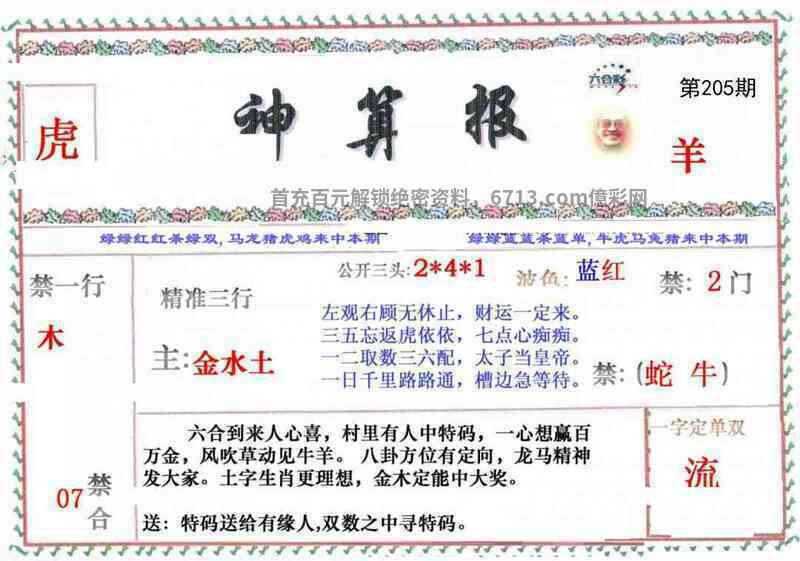 六合彩
第205期
虎
神算报
羊
首充百元解锁绝密资料，6713.com億彩网
绿绿红红杀绿双,马龙猪虎鸡来中本期
绿绿蓝蓝杀蓝单,牛虎马兔猪来中本期
禁一行
木
精准三行
主:金水土
公开三头:2*4*1
波色:蓝红
禁:2门
左观右顾无休止，财运一定来。
三五忘返虎依依，七点心痴痴。
一二取数三六配，太子当皇帝。
一日千里路路通，槽边急等待。
禁:(蛇 牛)
六合到来人心喜，村里有人中特码，一心想赢百
万金，风吹草动见牛羊。 八卦方位有定向，龙马精神
发大家。土字生肖更理想，金木定能中大奖。
送：特码送给有缘人,双数之中寻特码。
07
禁合
一字定单双
流